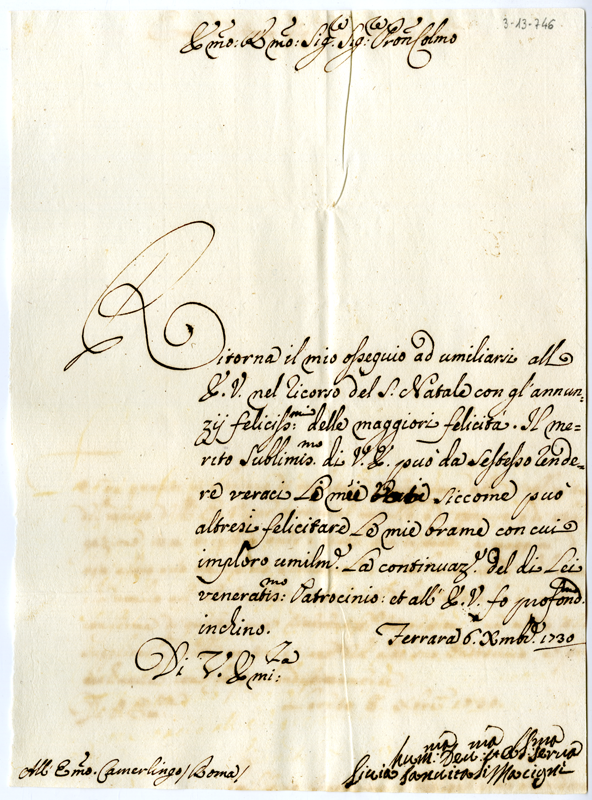 3-13-746
Emo: Rmo: Sigre. Sigre: Pron Colmo
Ritorna il mio ossequio ad umiliarsi all
E. V. nel ricorso del S. Natale con gl'annun=
zij felicissmi: delle maggiori felicità. Il me=
rito sublimismo. di V. E. può da sestesso rende=
re veraci le mie siccome può
altresi felicitare le mie brame con cui
imploro umilmte. la continuaze. del di Lei
veneratismo: Patrocinio: et all' E. V. fo profondmo.
inchino. Ferrara 6. Xmbre. 1730
Di V. Emiza:
All' Emo. Camerlingo / Roma /
huma: Deva: et Serva